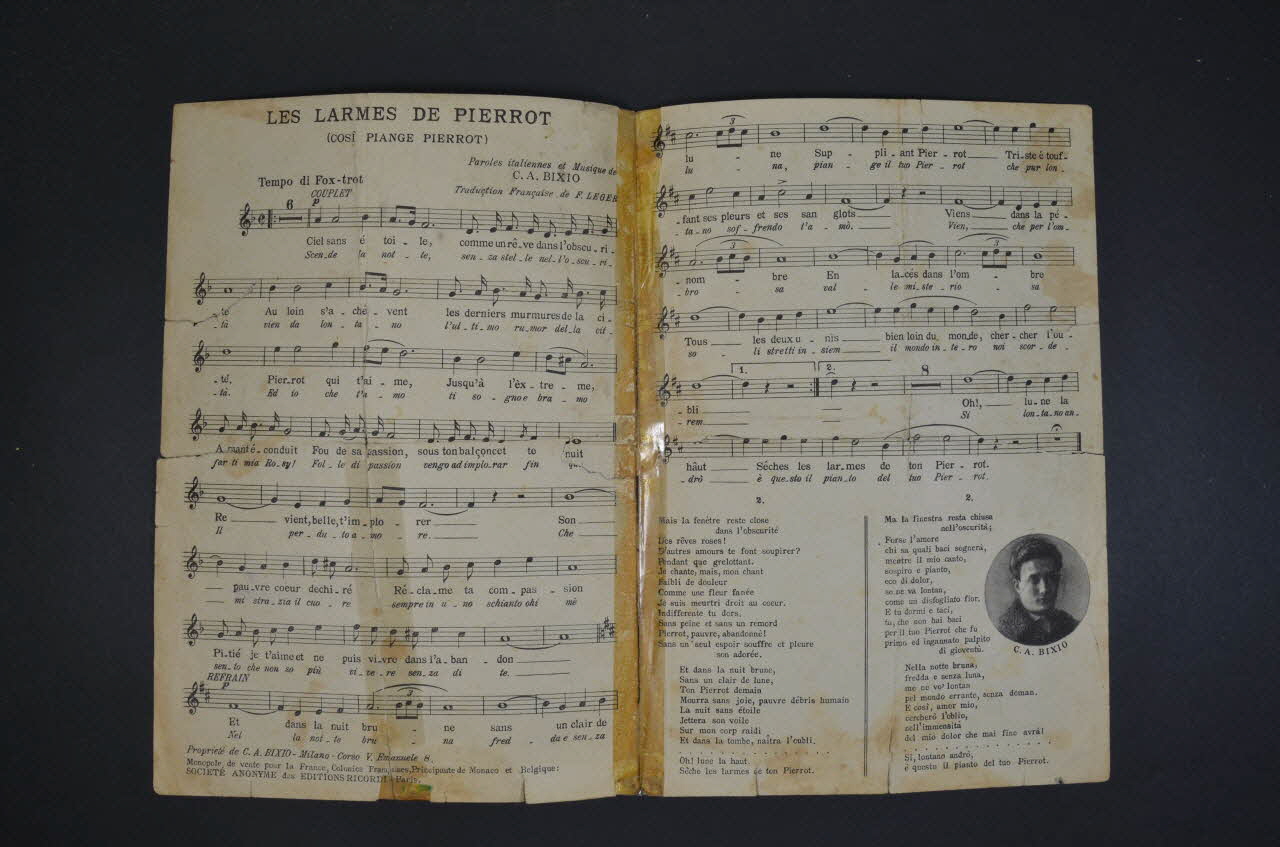 LES LARMES DE PIERROT
(COSÌ PIANGE PIERROT)
Paroles italiennes et Musique de
C. A. BIXIO
Traduction Française de F. LEGER
Tempo di Fox-trot
COUPLET
6
p
Ciel sans é toi _ le, comme un rê_ve dans l'obscu_ri_
Scen_de la not _ te, sen_za stel_le nel_l'o_scu_ri_
té Au loin s'a _ che _ vent les derniers murmures de la ci_
tà vien da lon _ ta _ no l'ul_ti_mo ru_mor del_la cit_
té. Pier_rot qui t'ai _ me, Jusqu'à l'èx_tre _ me,
tà. Ed io che t'a _ mo ti so _ gno e bra _ mo
A manté_conduit Fou de sa passion, sous ton balçon c'et te nuit
far ti mia Ro_sy! Fol_le di passion vengo ad implo_rar fin
Re vient, belle, t'im_plo _ rer Son
Il per_du_to a_mo _ re Che
pau_vre coeur dechi_ré Ré_cla_me ta com_pas _ sion
mi stra_zia il cuo _ re sempre in u_no schianto ohi mè
Pi_tié je t'aime et ne puis vi_vre dans l'a_ban _ don
sen_to che non so più vi_ve_re sen_za di te.
REFRAIN
p
3
Et dans la nuit bru _ ne sans un clair de
Nel la not_te bru _ na fred _ da e sen_za
Propriété de C. A. BIXIO - Milano - Corso V. Emanuele 8.
Monopole de vente pour la France, Colonies Françaises, Principauté de Monaco et Belgique:
SOCIÉTÉ ANONYME des EDITIONS RICORDI - Paris.
3
lu _ ne Sup _ pli_ant Pier _ rot Tris_te è touf_
lu _ na, pian _ ge il tuo Pier _ rot che pur lon_
_ fant ses pleurs et ses san glots Viens dans la pé_
_ ta_no sof_frendo t'a_mò. Vien, che per l'om_
3
3
_ nom _ bre En la_cés dans l'om bre
_ bro _ sa val _ le mi_ste_rio _ sa
Tous les deux u_nis bien loin du mon_de, cher_cher l'ou_
so _ li stretti in_siem il mondo in_te_ro noi scor_de_
1.
2.
8
_ bli Oh!, lu_ne la
_ rem Sì lon_ta_no an_
hâut Sêches les lar_mes de ton Pier _ rot.
_ drò è que_sto il pian_to del tuo Pier _ rot.
2.
Mais la fenêtre reste close
dans l'obscurité
Des rêves roses!
D'autres amours te font soupirer?
Pendant que grelottant.
Je chante, mais, mon chant
Faibli de douleur
Comme une fleur fanée
Je suis meurtri droit au coeur.
Indifferente tu dors.
Sans peine et sans un remord
Pierrot, pauvre, abandonné!
Sans un seul espoir souffre et pleure
son adorée.
Et dans la nuit brune,
Sans un clair de lune,
Ton Pierrot demain
Mourra sans joie, pauvre débris humain
La nuit sans étoile
Jettera son voile
Sur mon corp raidi
Et dans la tombe, naîtra l'oubli.
Oh! lune la haut
Sêche les larmes de ton Pierrot.
2.
Ma la finestra resta chiusa
nell'oscurità;
Forse l'amore
chi sa quali baci sognerà,
mentre il mio canto,
sospiro e pianto,
eco di dolor,
se ne va lontan,
come un disfogliato fior.
E tu dormi e taci,
tu, che non hai baci
per il tuo Pierrot che fu
primo ed ingannato palpito
di gioventù.
Nella notte bruna,
fredda e senza luna,
me ne vo' lontan
pel mondo errante, senza doman.
E così, amor mio,
cercherò l'oblio,
nell'immensità
del mio dolor che mai fine avrà!
Sì, lontano andrò,
è questo il pianto del tuo Pierrot.
C. A. BIXIO